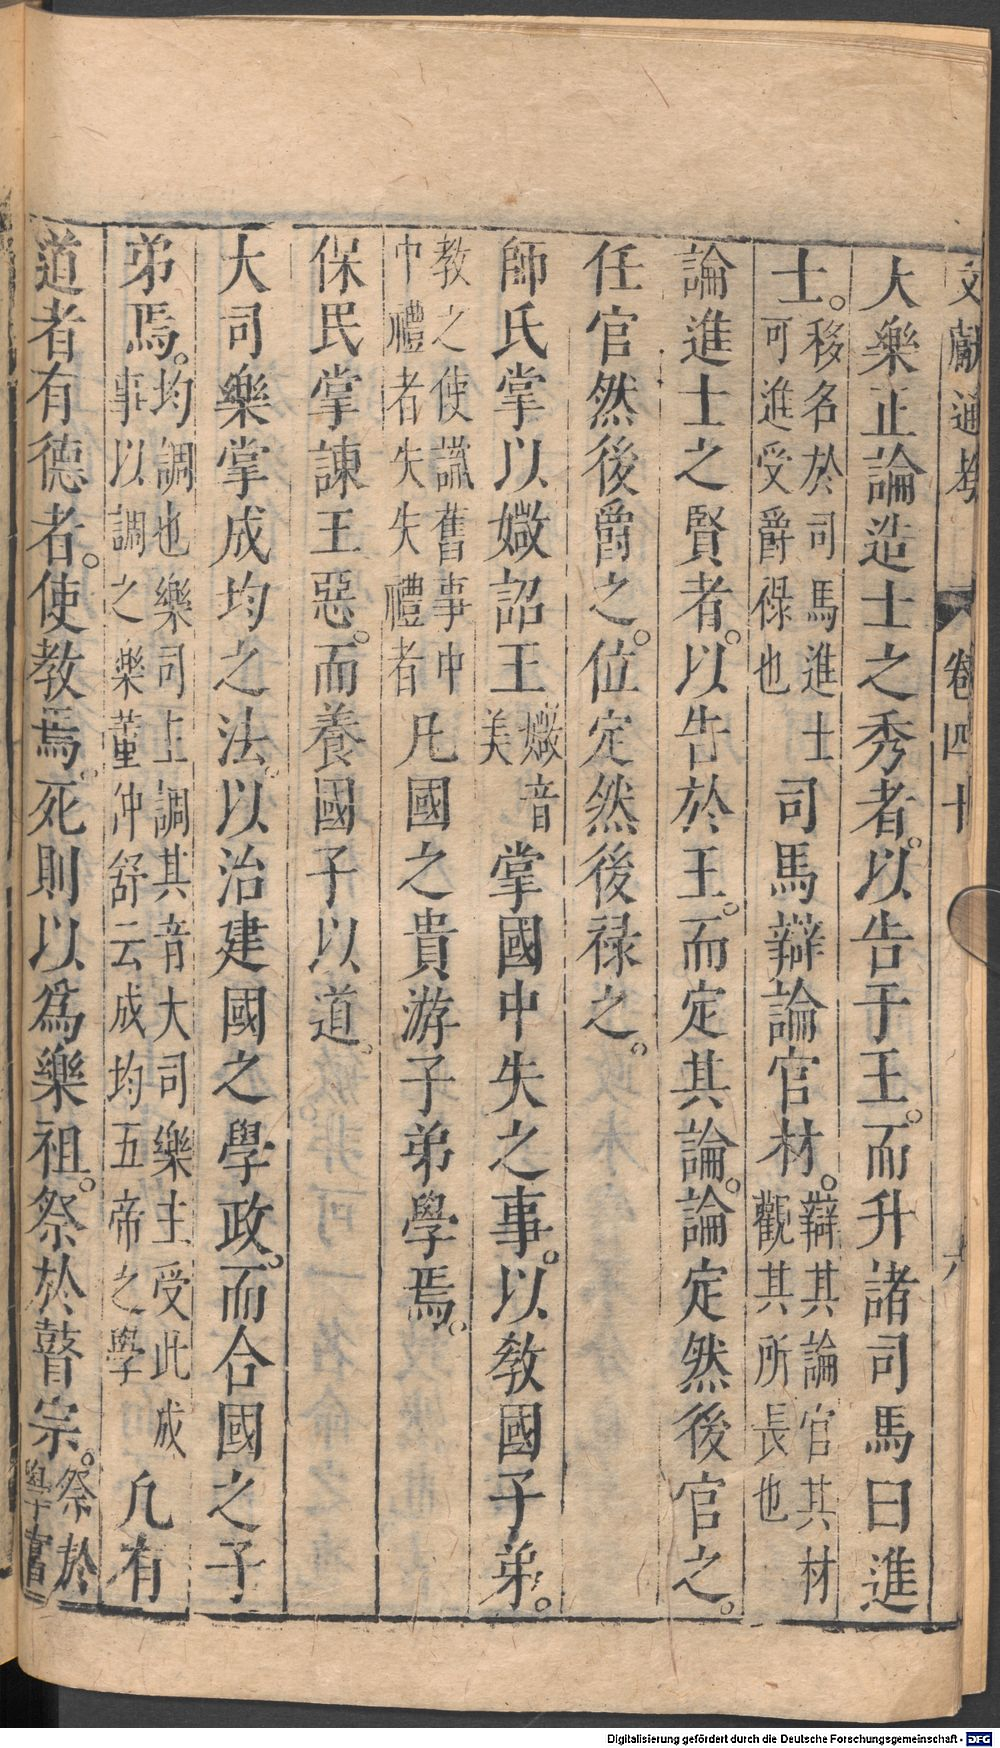 文獻通考 卷四十 六
大樂正論造士之秀者以告于王而升諸司馬曰進
士移名於司馬進士可進受爵祿也司馬辯論官材辯其論官其材觀其所長也
論進士之賢者以告於王而定其論論定然後官之
任官然後爵之位定然後祿之
師氏掌以媺詔王媺音美掌國中失之事以教國子弟
教之使識舊事中中禮者失失禮者凡國之貴游子弟學焉
保民掌諫王惡而養國子以道
大司樂掌成均之法以治建國之學政而合國之子
弟焉均調也樂司主調其音大司樂主受此成事以調之樂董仲舒云成均五帝之學凡有
道者有德者使教焉死則以為樂祖祭於瞽宗祭於學宮
Digitalisierung gefördert durch die Deutsche Forschungsgemeinschaft - DFG